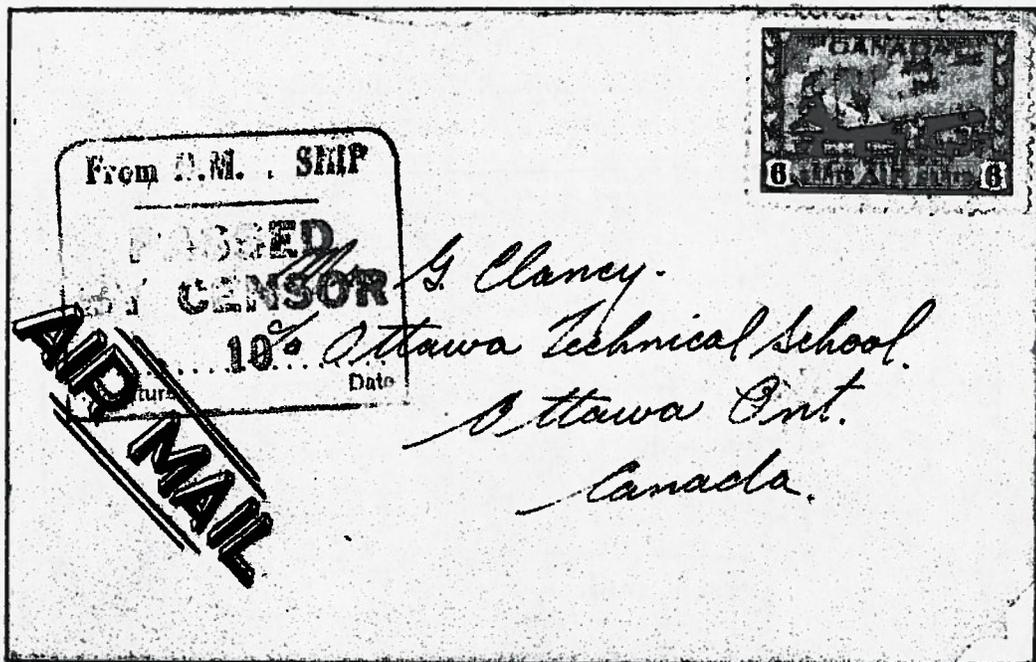 CANADA
6 6
From H.M. . SHIP
PASSED
BY CENSOR
10
Date
AIR MAIL
G. Clancy.
c/o Ottawa Technical School.
Ottawa Ont.
Canada.